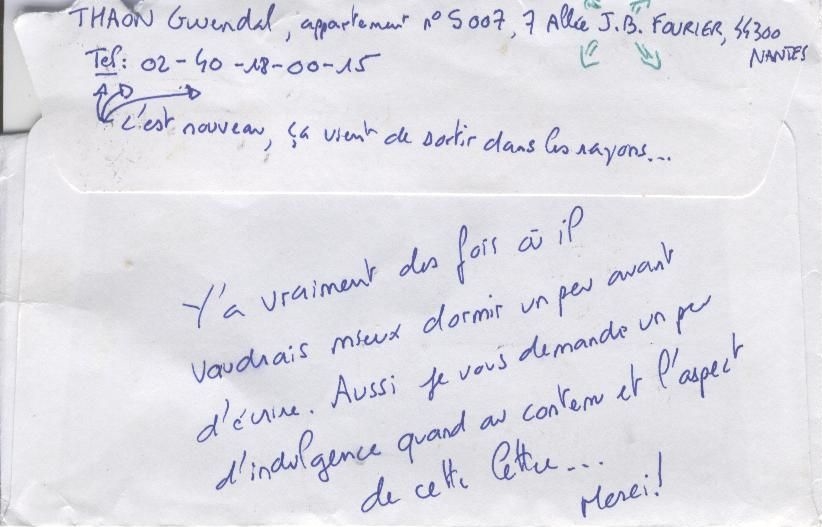 THAON Gwendal, appartement n° S007, 7 Allée J.B. FOURIER, 44300
NANTES
Tel: 02-40-18-00-15
c'est nouveau, ça vient de sortir dans les rayons...
Y'a vraiment des fois où il
vaudrais mieux dormir un peu avant
d'écrire. Aussi je vous demande un peu
d'indulgence quand au contenu et l'aspect
de cette lettre...
Merci!